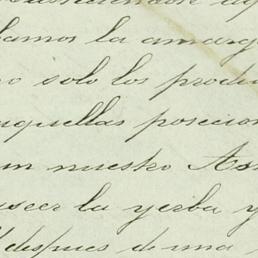 lamos la amarg
o solo los produ
aquellas posecion
en nuestro As
useer la yerba y
despues de una